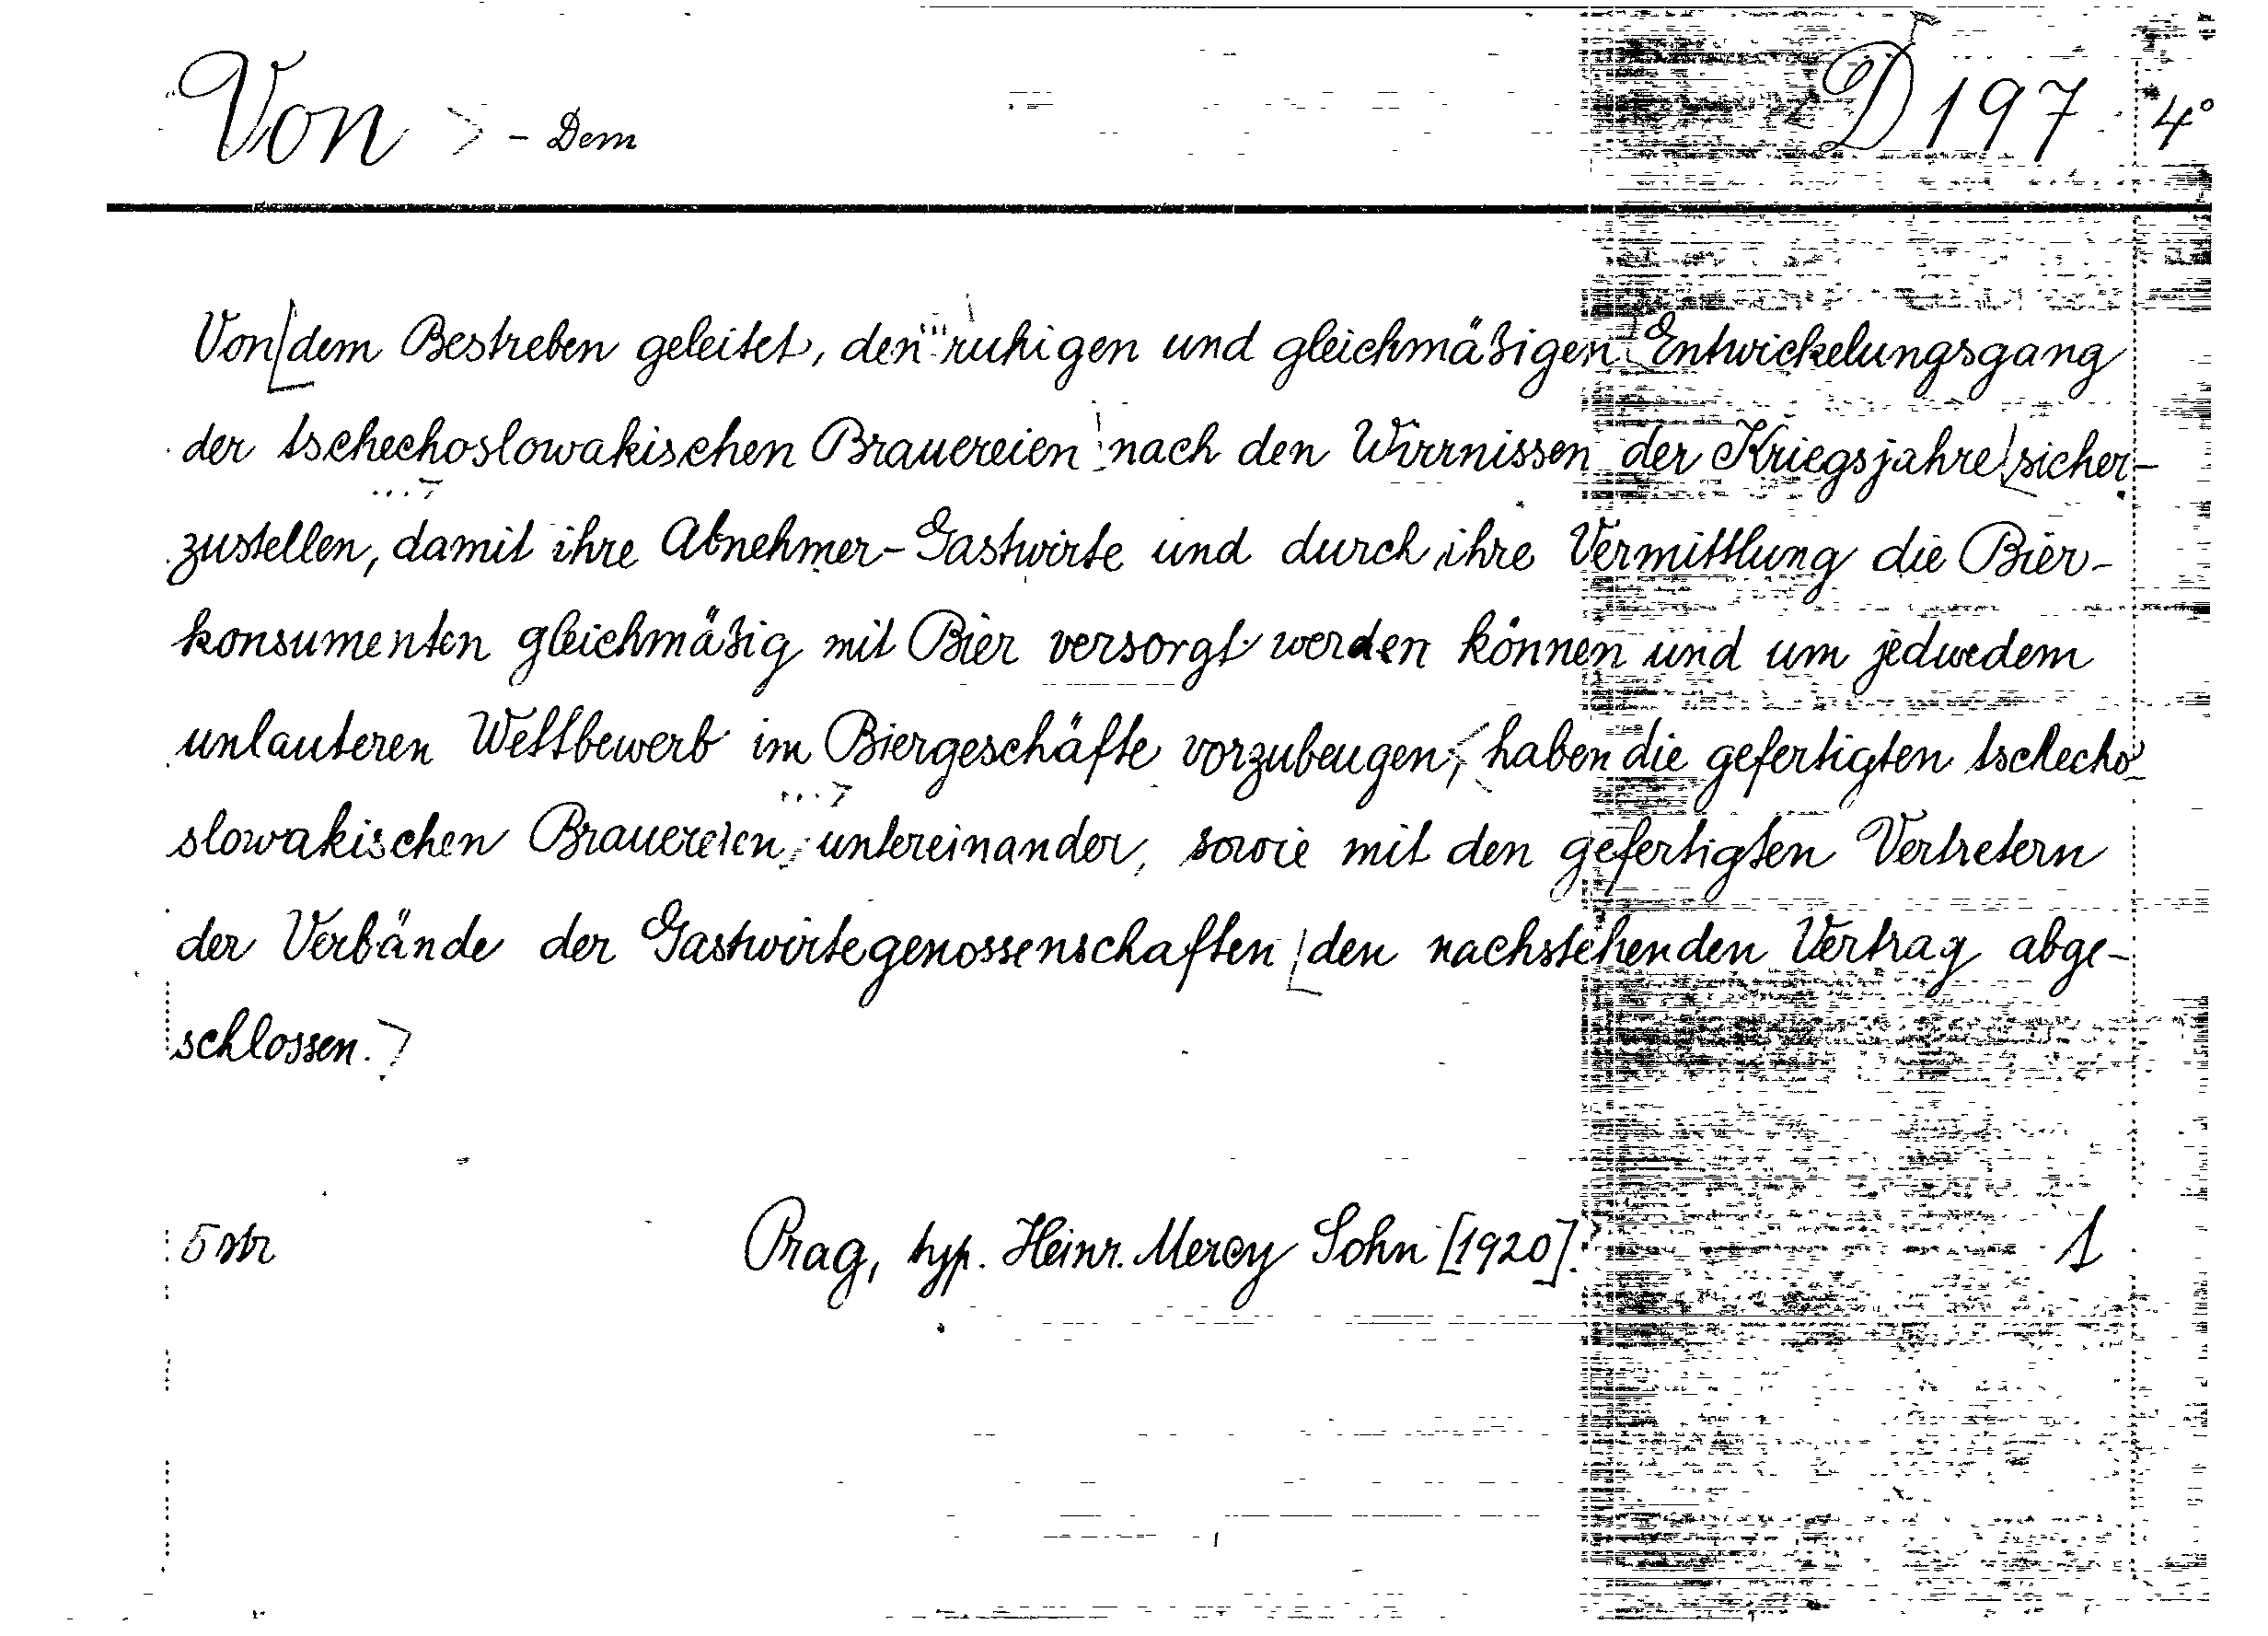 Von - Dem D 197 4°
Von dem Bestreben geleitet, den ruhigen und gleichmäßigen Entwickelungsgang
der tschechoslowakischen Brauereien nach den Wirrnissen der Kriegsjahre sicher-
zustellen, damit ihre Abnehmer-Gastwirte und durch ihre Vermittlung die Bier-
konsumenten gleichmäßig mit Bier versorgt werden können und um jedwedem
unlauteren Wettbewerb im Biergeschäfte vorzubeugen, haben die gefertigten tschecho-
slowakischen Brauereien untereinander, sowie mit den gefertigten Vertretern
der Verbände der Gastwirtegenossenschaften den nachstehenden Vertrag abge-
schlossen.
5 str Prag, typ. Heinr. Mercy Sohn [1920]. 1